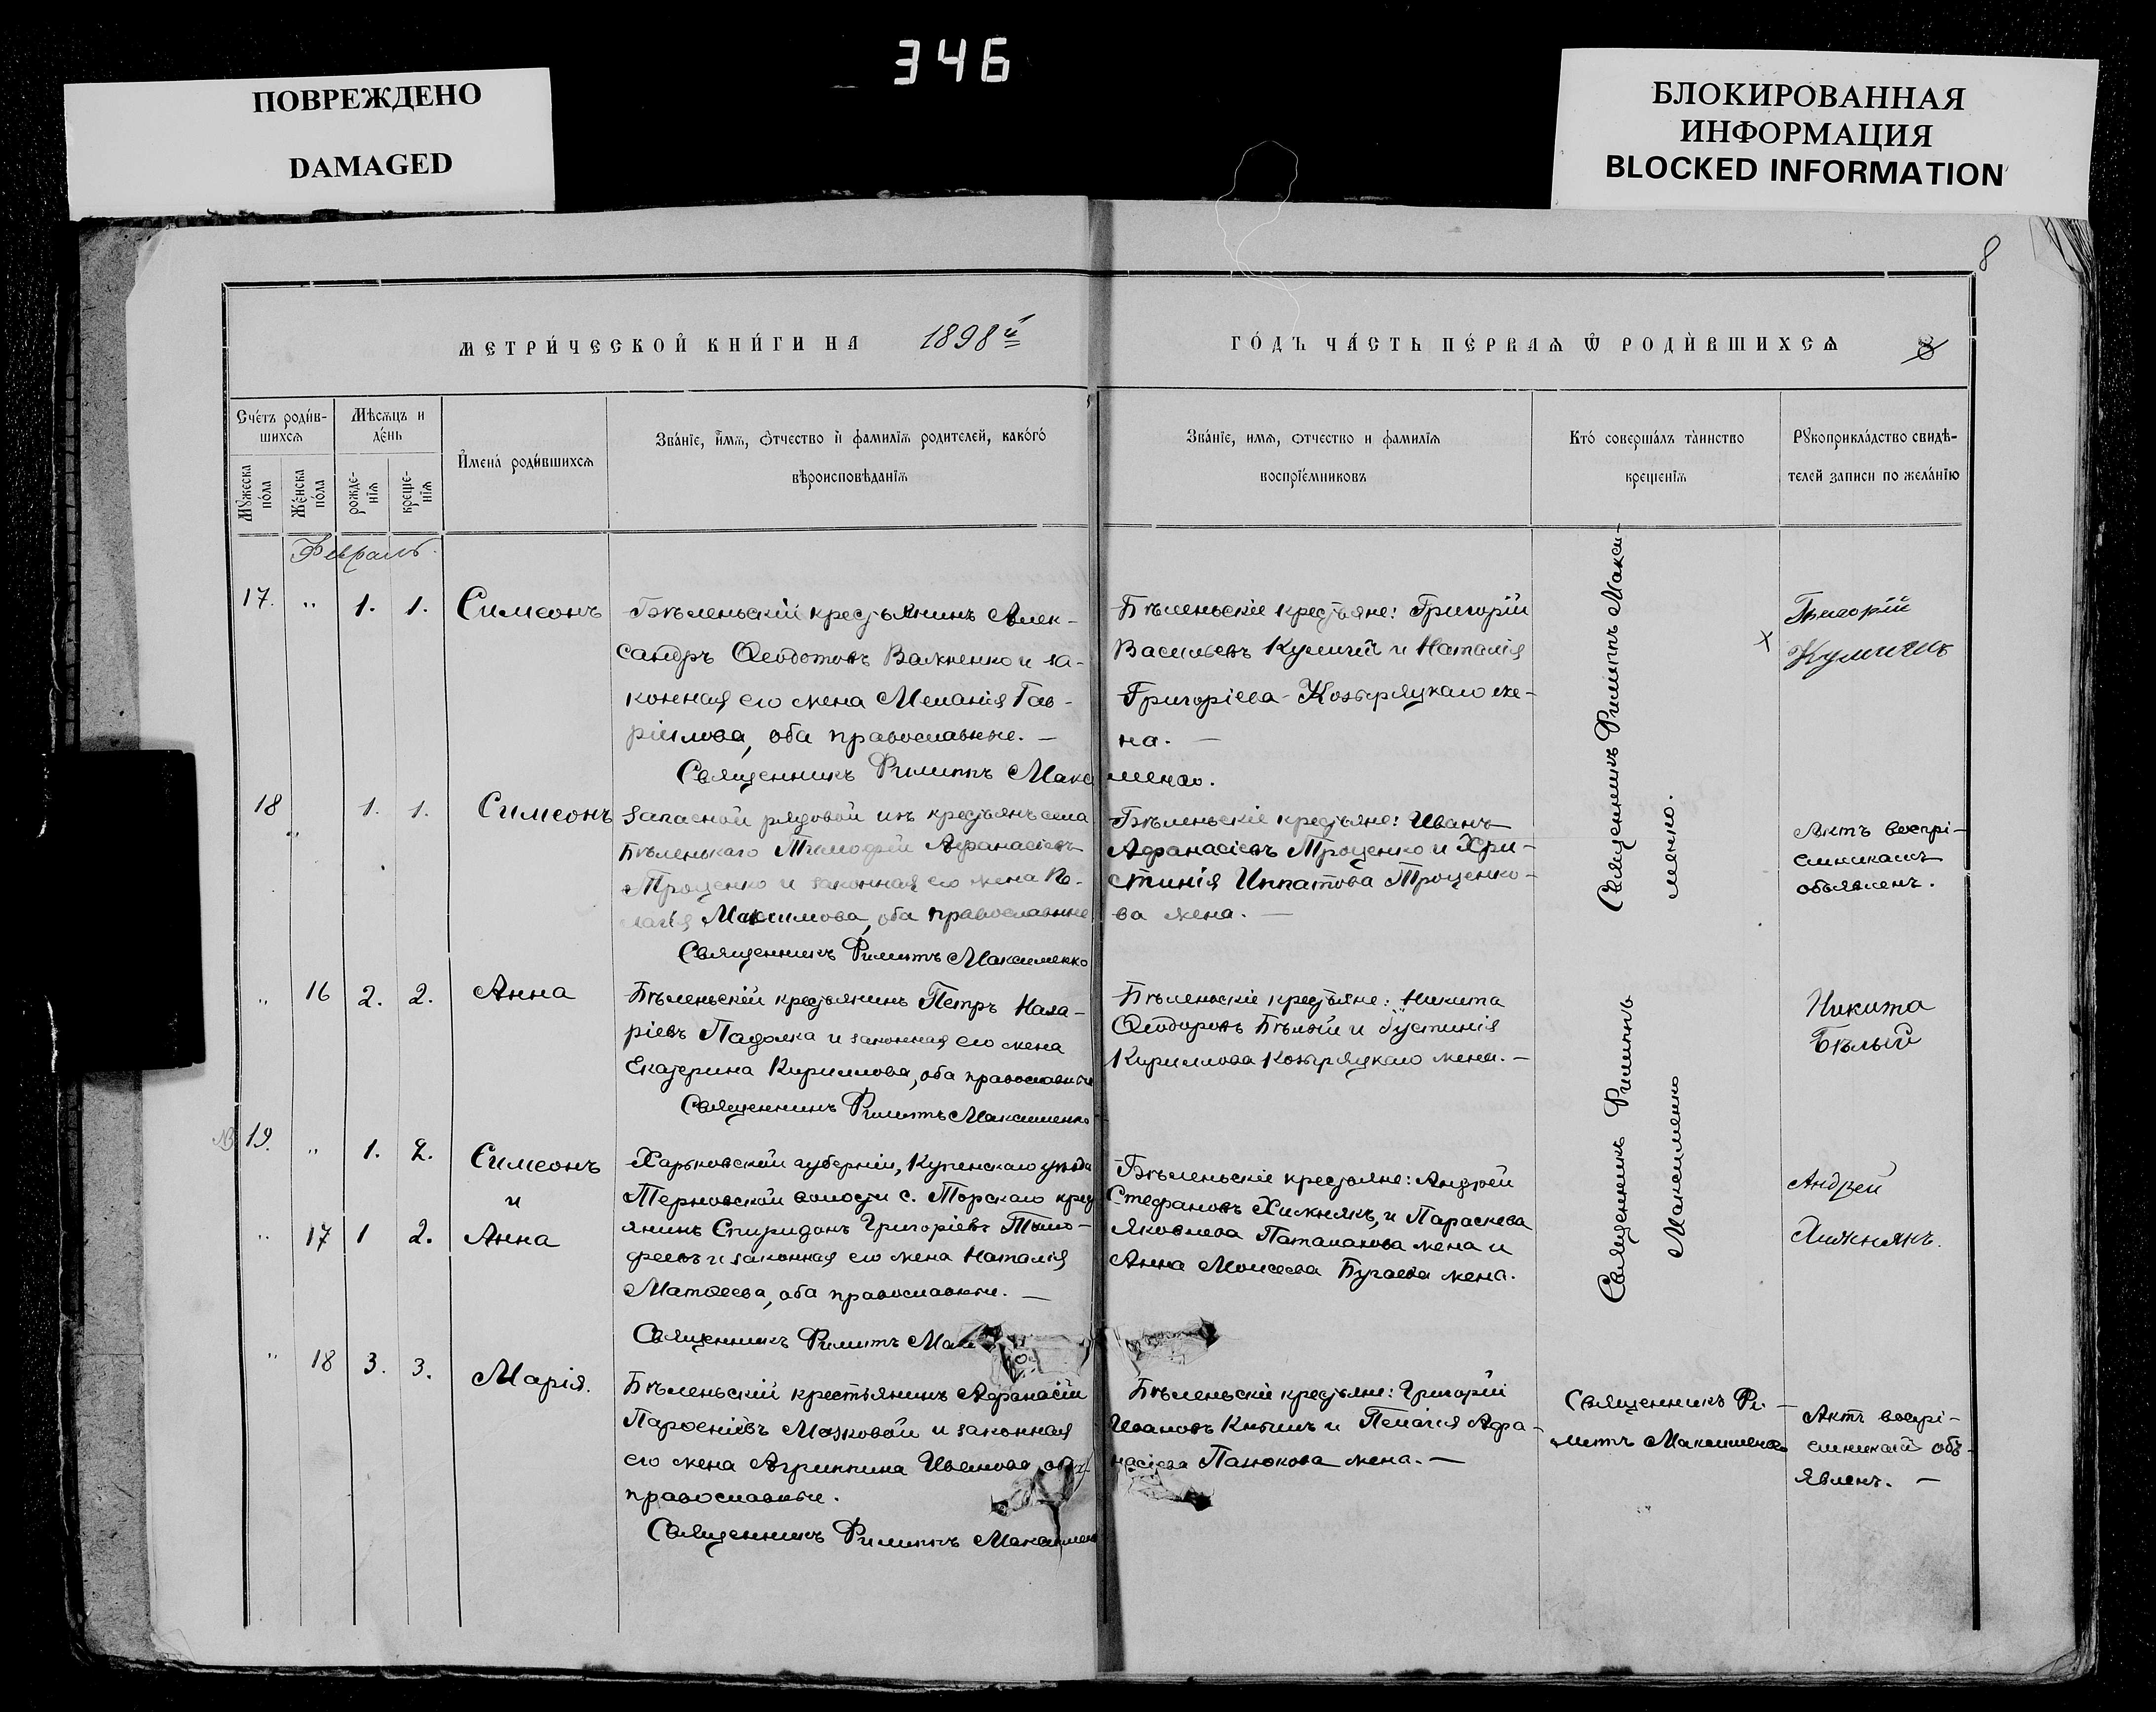 346
ПОВРЕЖДЕНО
DAMAGED
БЛОКИРОВАННАЯ
ИНФОРМАЦИЯ
BLOCKED INFORMATION
8
МЕТРИ́ЧЕСКОЙ КНИ́ГИ НА 1898й ГО́ДЪ ЧА́СТЬ ПЕ́РВАѦ Ѿ РОДИ́ВШИХСѦ 8
Сче́тъ роди́в-
шихсѧ
Мѣ́сѧцъ и
де́нь
Мꙋ́жеска
по́ла
Же́нска
по́ла
рожде-
нїѧ
креще-
нїѧ
И҆мена̀ роди́вшихсѧ
Зва́нїе, и҆́мѧ, ѻ҆́тчество и҆ фамилїѧ родителей, како́гѡ
вѣроисповѣданїѧ
Зва́нїе, имѧ, ѻтчество и фамилїѧ
воспрїе́мниковъ
Кто̀ соверша́лъ та̀инство
крещенїѧ
Рꙋкоприкла́дство свидѣ-
телей записи по жела́нїю
Февраль.
17. " 1. 1. Симеонъ
Бѣленьскій крестьянинъ Алек-
сандръ Ѳеодотовъ Важненко и за-
конная его жена Меланія Гав-
ріилова, оба православные. —
Бѣленьскіе крестьяне: Григорій
Васильевъ Кулигій и Наталія
Григоріева Козыряцкаго же-
на. —
Священникъ Филиппъ Максименко.
Священникъ Филиппъ Макси-
менко.
х Григорій
18 " 1. 1. Симеонъ
Запасной рядовой изъ крестьянъ села
Бѣленькаго Тимофей Афанасіевъ
Троценко и законная его жена Пе-
лагія Максимова, оба православные
Священникъ Филиппъ Максименко
Бѣленьскіе крестьяне: Иванъ
Афанасіевъ Троценко и Хри-
стинія Ипатова Троценко-
ва жена. —
Актъ воспрі-
емникамъ
объявленъ.
" 16 2. 2. Анна
Бѣленьскій крестьянинъ Петръ Наза-
ріевъ Падалка и законная его жена
Екатерина Кириллова, оба православные
Священникъ Филиппъ Максименко
Бѣленьскіе крестьяне: Никита
Ѳеодоровъ Бѣлый и Іустинія
Кириллова Козыряцкаго жена. —
Священникъ Филиппъ
Максименко
Никита
Бѣлый
19. " 1. 2. Симеонъ
и
" 17 1 2. Анна
Харьковской губерніи, Купенскаго уѣзда
Терновской волости с. Торскаго крест
янинъ Спиридонъ Григоріевъ Тимо-
феевъ и законная его жена Наталія
Матѳеева, оба православные. —
Священникъ Филиппъ Мак
Бѣленьскіе крестьяне: Андрей
Стефановъ Хижнякъ, и Параскева
Яковлева Паталахова жена и
Анна Моисеева Бугаева жена.
Андрей
Хижнякъ.
" 18 3. 3. Марія.
Бѣленьскій крестьянинъ Афанасій
Парѳеніевъ Мозковой и законная
его жена Агриппина Иванова оба
православные.
Священникъ Филиппъ Максимен
Бѣленьскіе крестьяне: Григорій
Ивановъ Кнышъ и Пелагія Афа-
насіева Панюкова жена. —
Священникъ Фи-
липпъ Максименко
Актъ воспрі-
емникамъ объ-
явленъ. —